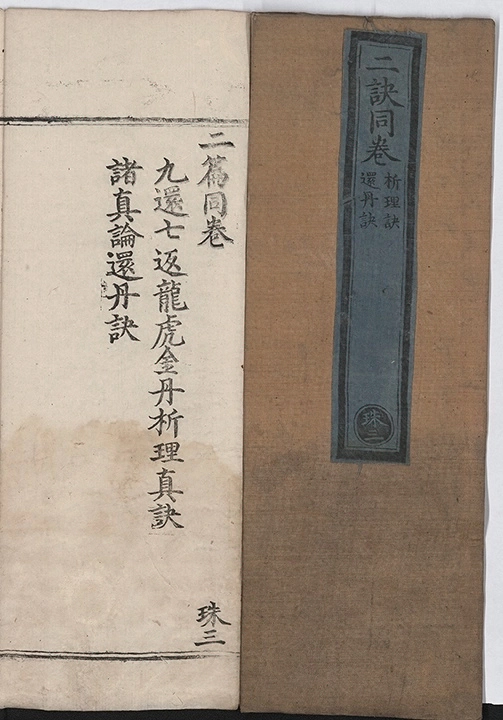 二訣同卷
析理訣
還丹訣
珠三
二篇同卷
九還七返龍虎金丹析理真訣
諸真論還丹訣
珠三